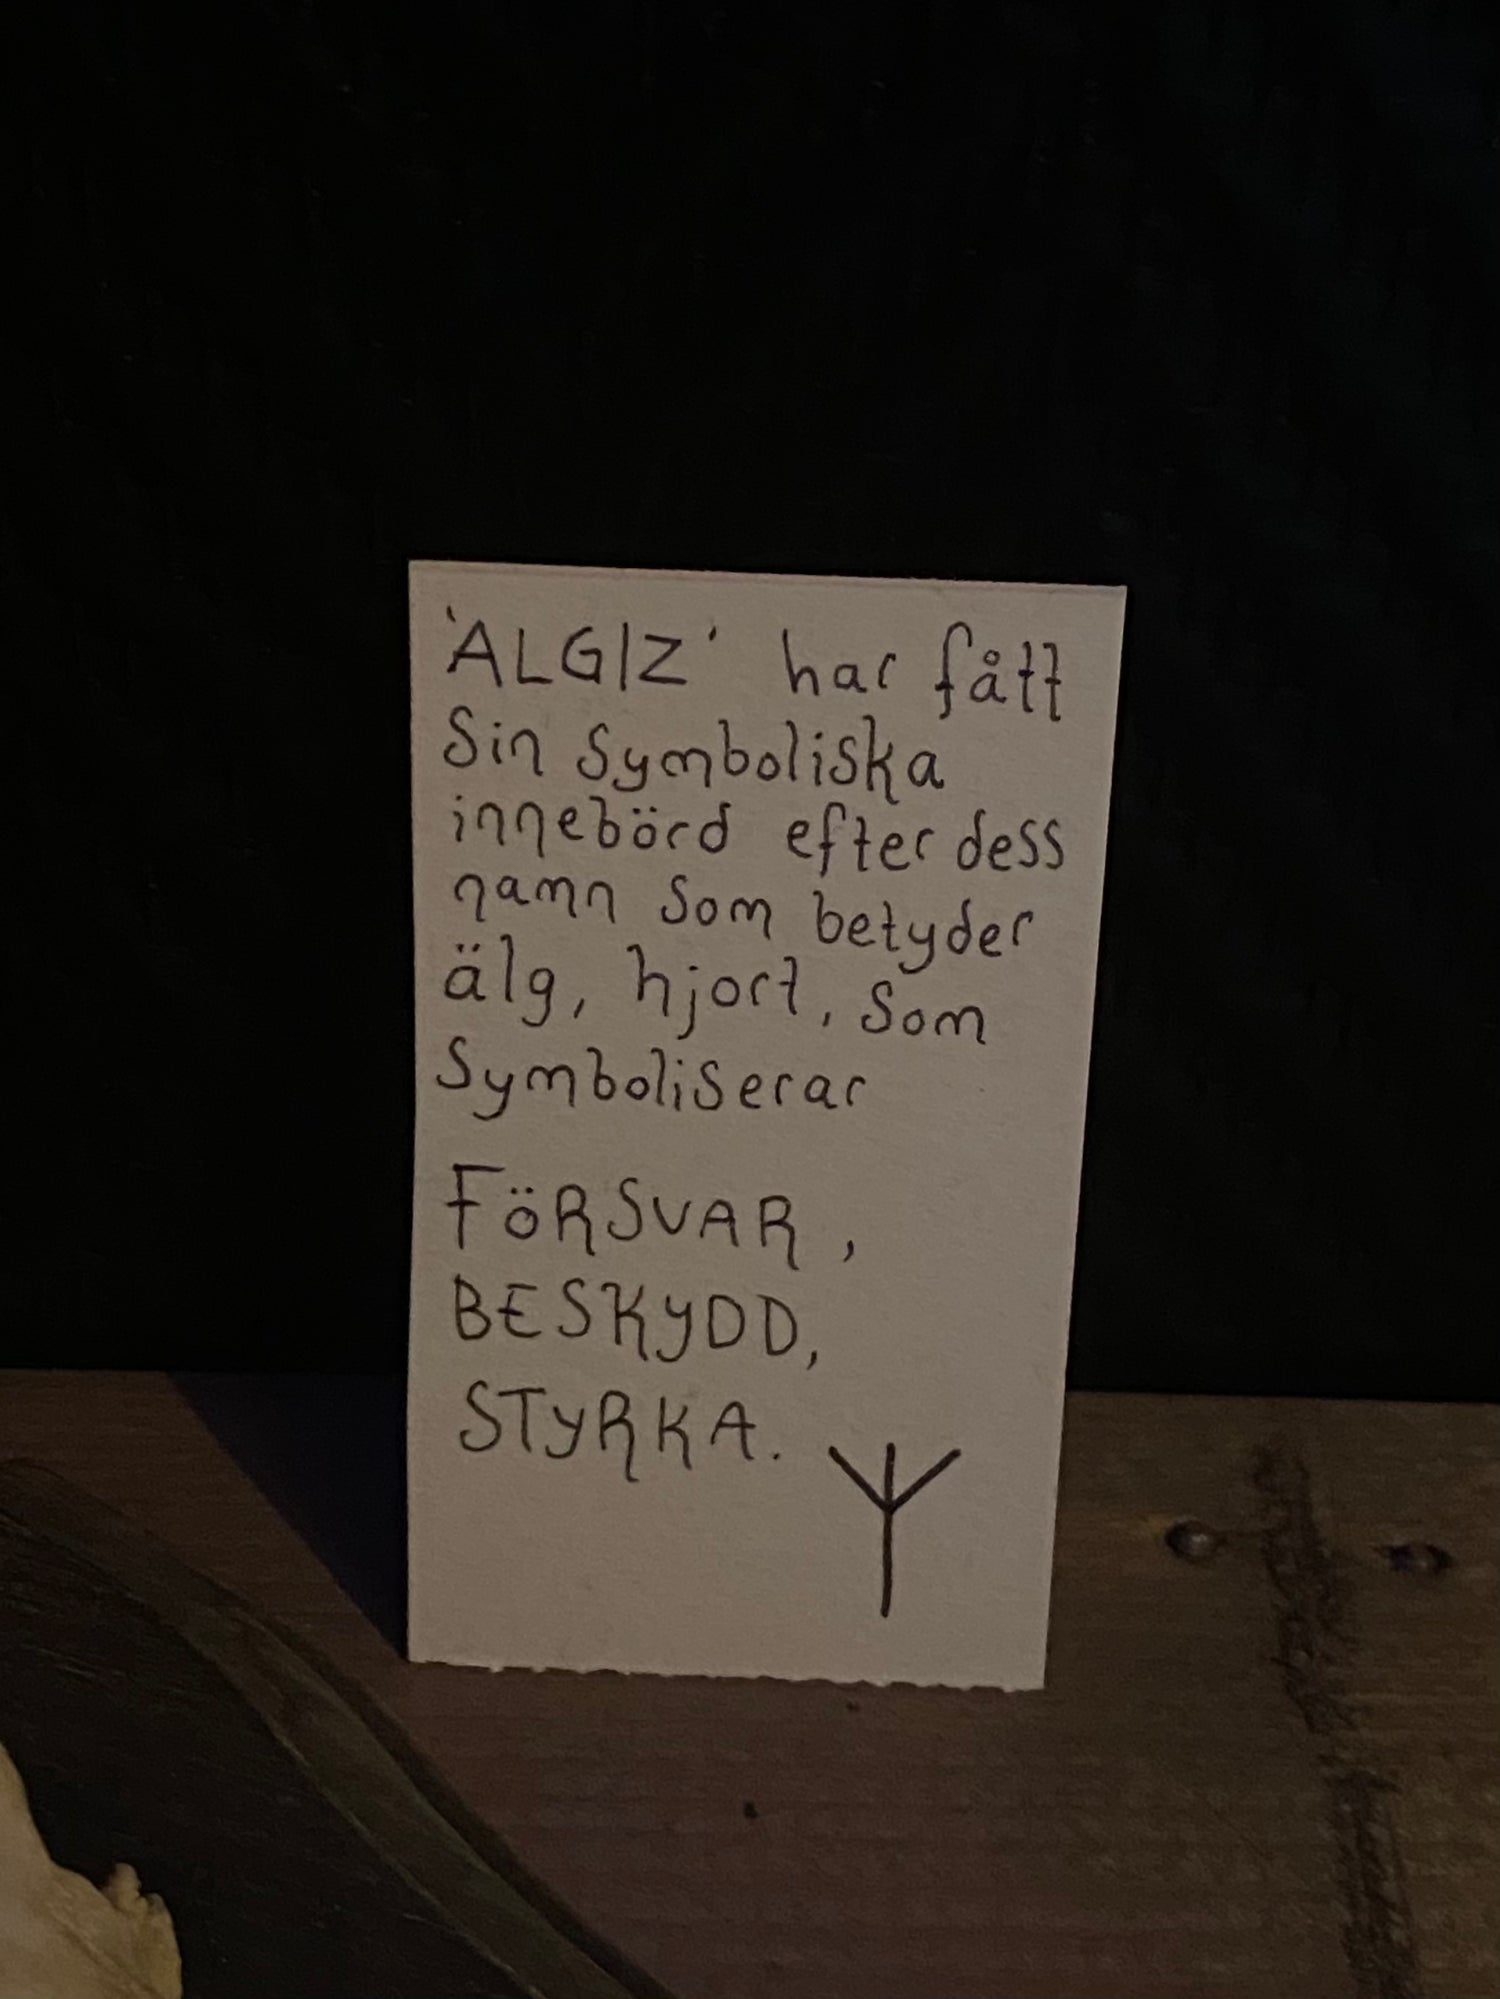 'ALGIZ' har fått
Sin Symboliska
innebörd efter dess
namn Som betyder
älg, hjort, Som
Symboliserar
FÖRSVAR,
BESKYDD,
STYRKA. ᛉ